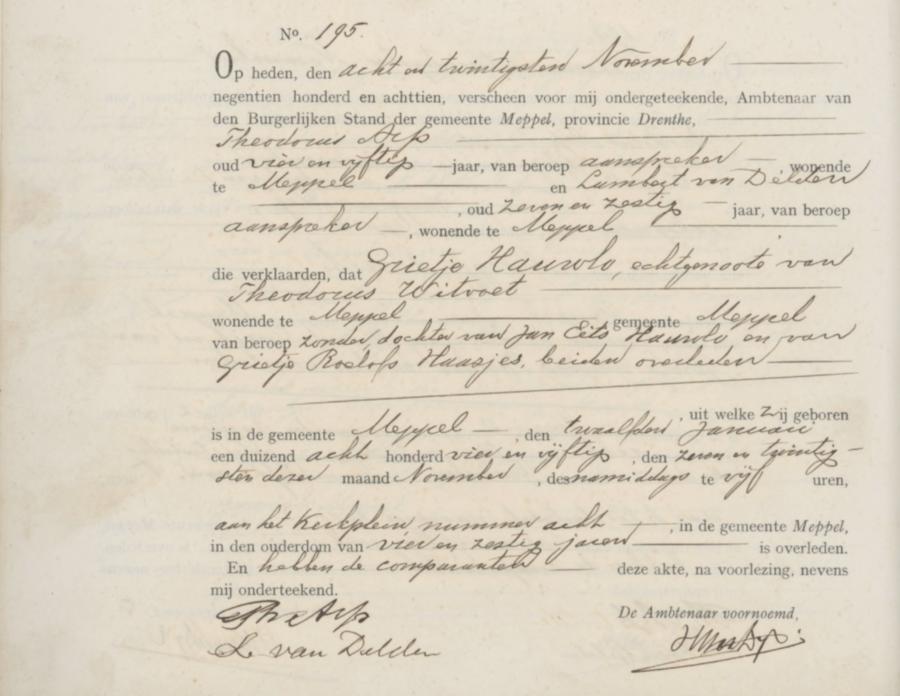 No. 195.
Op heden, den acht en twintigsten November
negentien honderd en achttien, verscheen voor mij ondergeteekende, Ambtenaar van
den Burgerlijken Stand der gemeente Meppel, provincie Drenthe,
Theodorus Arp
oud vier en vijftig jaar, van beroep aanspreker, wonende
te Meppel en Lambert van Delden
, oud zeven en zestig jaar, van beroep
aanspreker, wonende te Meppel
die verklaarden, dat Grietje Hauwlo, echtgenoote van
Theodorus Witvoet
wonende te Meppel gemeente Meppel
van beroep zonder, dochter van Jan Eits Hauwlo en van
Grietje Roelofs Haasjes, beiden overleden
, uit welke zij geboren
is in de gemeente Meppel, den twaalfden Januari
een duizend acht honderd vier en vijftig, den zeven en twintig-
sten dezer maand November, des namiddags te vijf uren,
aan het Kerkplein nummer acht, in de gemeente Meppel,
in den ouderdom van vier en zestig jaren is overleden.
En hebben de comparanten deze akte, na voorlezing, nevens
mij onderteekend.
Th Arp De Ambtenaar voornoemd,
L. van Delden